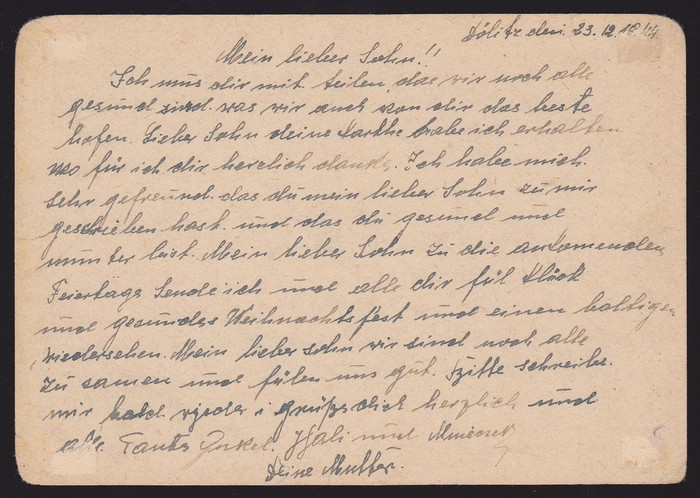 Dölitz den. 23.12.1944
Mein lieber Sohn!!
Ich mus dir mit teilen das wir noch alle
gesund sind. was wir auch von dir das beste
hofen. Lieber Sohn deine Karthe habe ich erhalten
wo für ich dir herzlich danke. Ich habe mich
sehr gefreund. das du mein lieber Sohn zu mir
geschrieben hast. und das du gesund und
munter bist. Mein lieber Sohn zu die ankomenden
Feiertage Sende ich und alle dir fül Klück
und gesundes Weihnachtsfest und einen baltigen
wiedersehen. Mein lieber Sohn wir sind noch alle
zu samen und fülen uns gut. Bitte schreibe.
mir bald wieder i grüßs dich herzlich und
alle Tante Onkel. und
Deine Mutter.